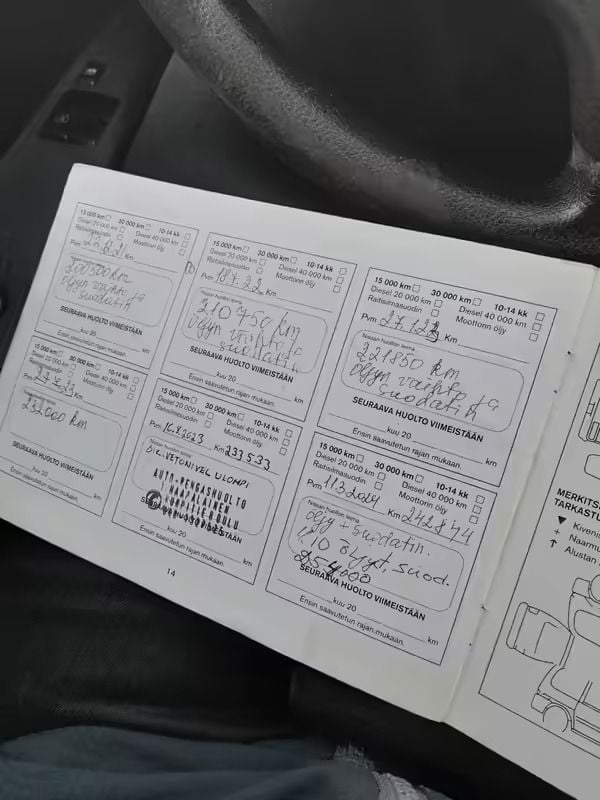 15 000 km 30 000 km 10-14 kk
Diesel 20 000 km Diesel 40 000 km
Raitisilmasuodin Moottorin öljy
Pvm Km
200500 km
öljyn vaihto ja
suodatin
SEURAAVA HUOLTO VIIMEISTÄÄN
kuu 20
Ensin saavutetun rajan mukaan. km
15 000 km 30 000 km 10-14 kk
Diesel 20 000 km Diesel 40 000 km
Raitisilmasuodin Moottorin öljy
Pvm 18.7.22 Km
Nissan huollon leima
210 450 km
öljyn vaihto ja
suodatin
SEURAAVA HUOLTO VIIMEISTÄÄN
kuu 20
Ensin saavutetun rajan mukaan. km
15 000 km 30 000 km 10-14 kk
Diesel 20 000 km Diesel 40 000 km
Raitisilmasuodin Moottorin öljy
Pvm 27.12 Km
Nissan huollon leima
221850 km
öljyn vaihto ja
suodatin
SEURAAVA HUOLTO VIIMEISTÄÄN
kuu 20
Ensin saavutetun rajan mukaan. km
15 000 km 30 000 km 10-14 kk
Diesel 20 000 km Diesel 40 000 km
Raitisilmasuodin Moottorin öljy
Pvm Km
Nissan huollon leima
232000 km
SEURAAVA HUOLTO VIIMEISTÄÄN
kuu 20
Ensin saavutetun rajan mukaan. km
15 000 km 30 000 km 10-14 kk
Diesel 20 000 km Diesel 40 000 km
Raitisilmasuodin Moottorin öljy
Pvm 16.8.2023 Km 233533
Nissan huollon leima
VETONIVEL ULOMPI
AUTO-RENGASHUOLTO
SEURAAVA HUOLTO VIIMEISTÄÄN
kuu 20
Ensin saavutetun rajan mukaan. km
15 000 km 30 000 km 10-14 kk
Diesel 20 000 km Diesel 40 000 km
Raitisilmasuodin Moottorin öljy
Pvm 11.3.2024 Km 242844
Nissan huollon leima
öljy + suodatin.
öljyt, suod.
254000
SEURAAVA HUOLTO VIIMEISTÄÄN
kuu 20
Ensin saavutetun rajan mukaan. km
14
MERKITS
TARKASTU
Kiveni
Naarmu
Alustan